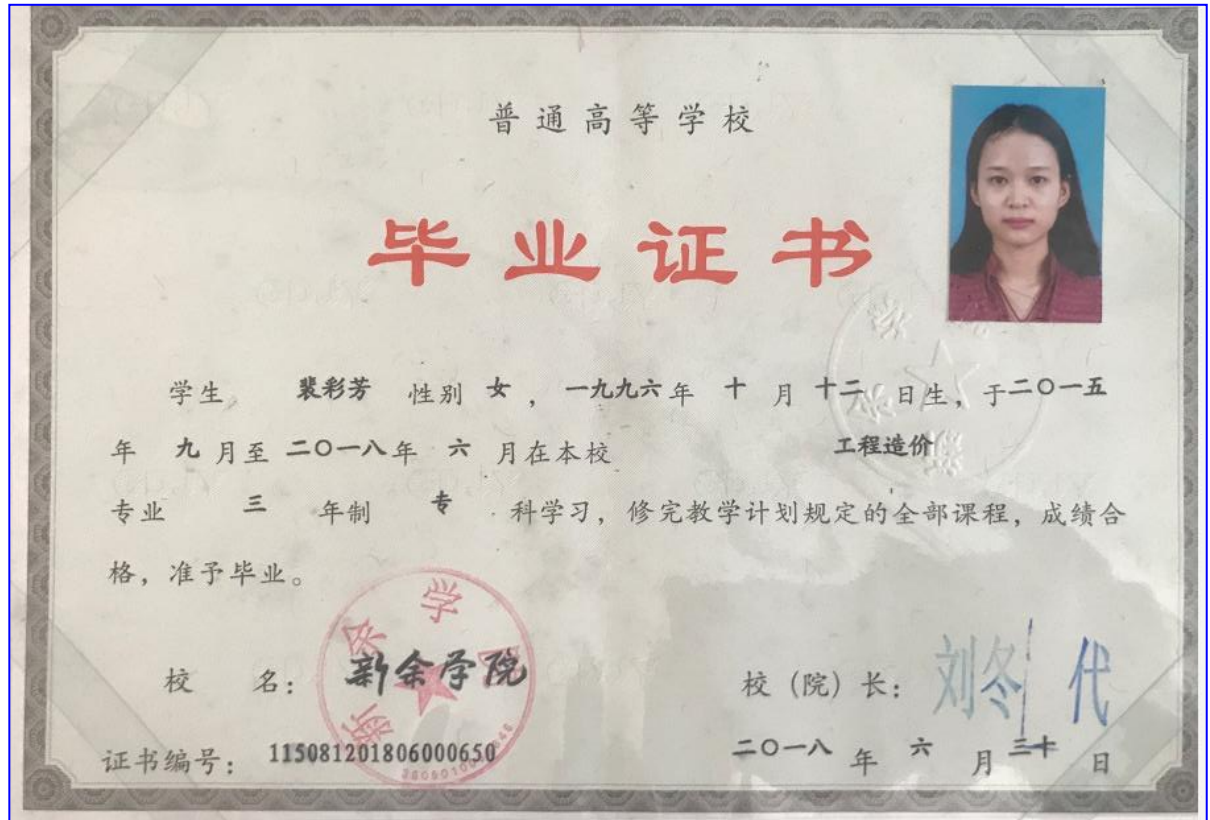 普通高等学校
毕业证书
学生 裴彩芳 性别 女，一九九六年 十 月 十二 日生，于二〇一五
年 九 月至 二〇一八年 六 月在本校 工程造价
专业 三 年制 专 科学习，修完教学计划规定的全部课程，成绩合
格，准予毕业。
新余学院
校 名：新余学院 校（院）长：刘冬 代
证书编号：115081201806000650 二〇一八 年 六 月 三十 日